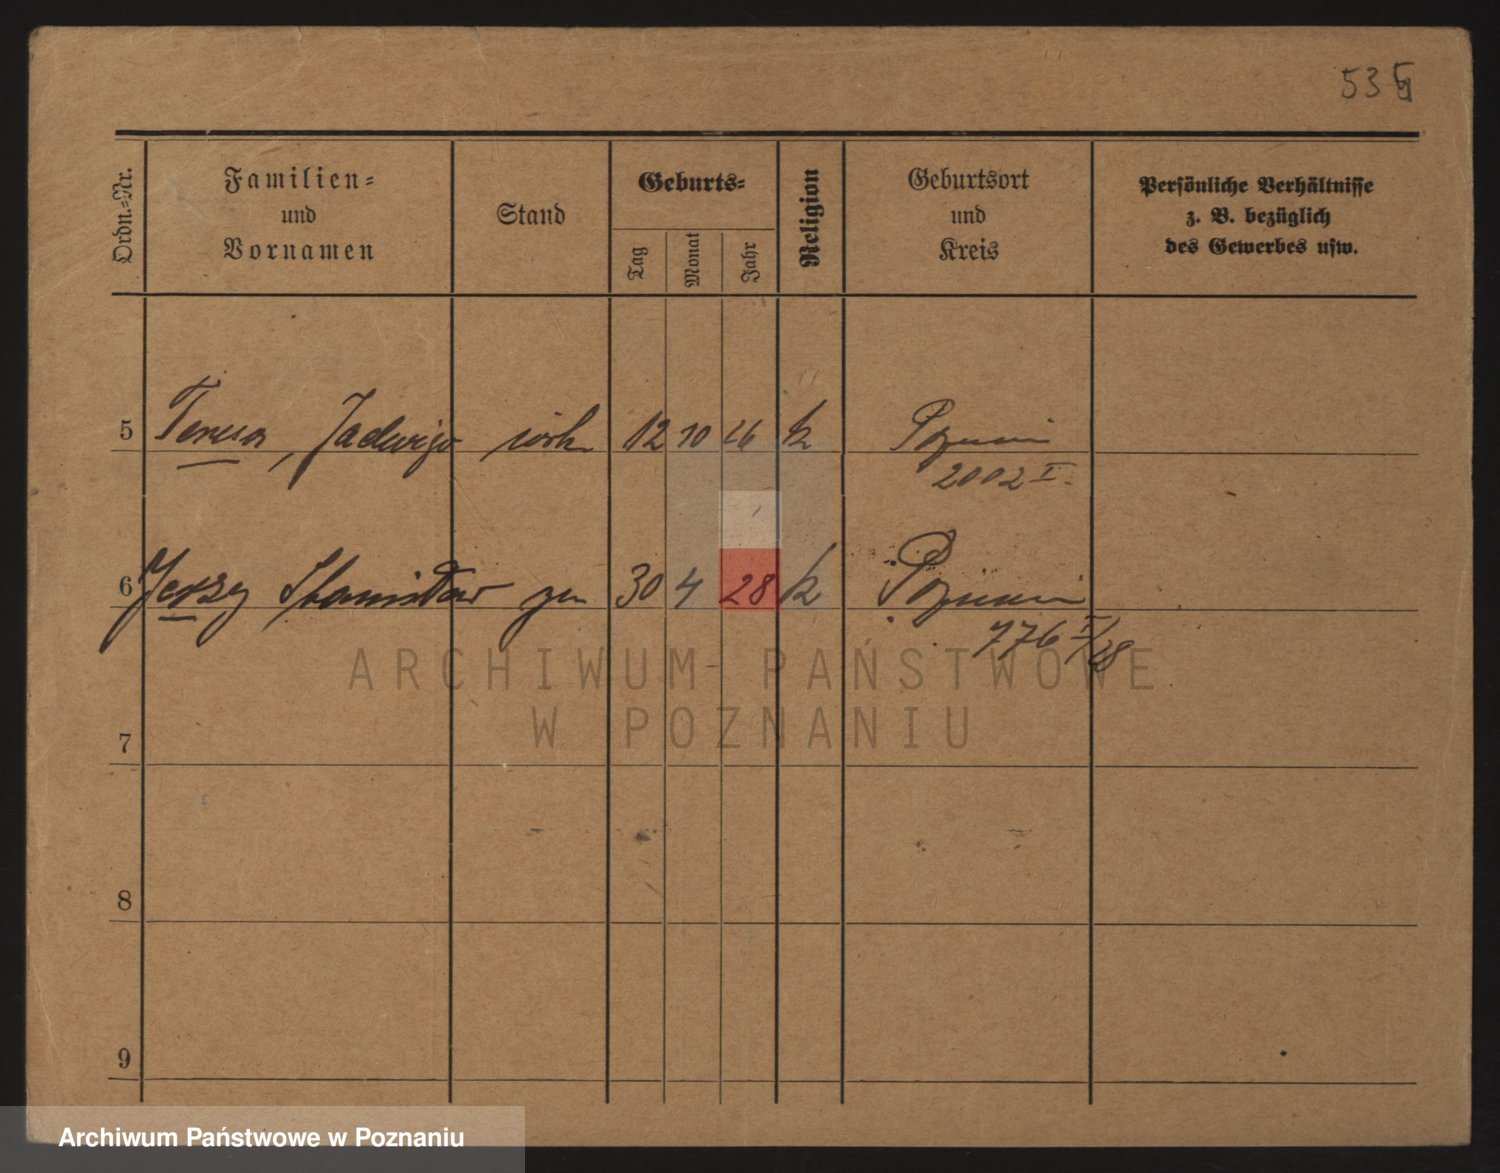 53
Ordn.-Nr.
Familien-
und
Vornamen
Stand
Geburts-
Tag
Monat
Jahr
Religion
Geburtsort
und
Kreis
Persönliche Verhältnisse
z. B. bezüglich
des Gewerbes usw.
5 Teresa, Jadwiga 12 10 k Poznań
2002 I.
6 Jerzy Stanisław 30 4 28 k Poznań
776 I/28
ARCHIWUM PAŃSTWOWE
W POZNANIU
7
8
9
Archiwum Państwowe w Poznaniu